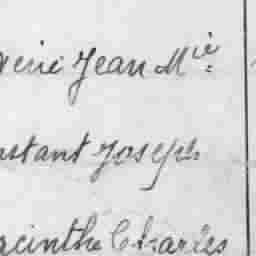 Jean Mie
nstant Joseph
acinthe Charles